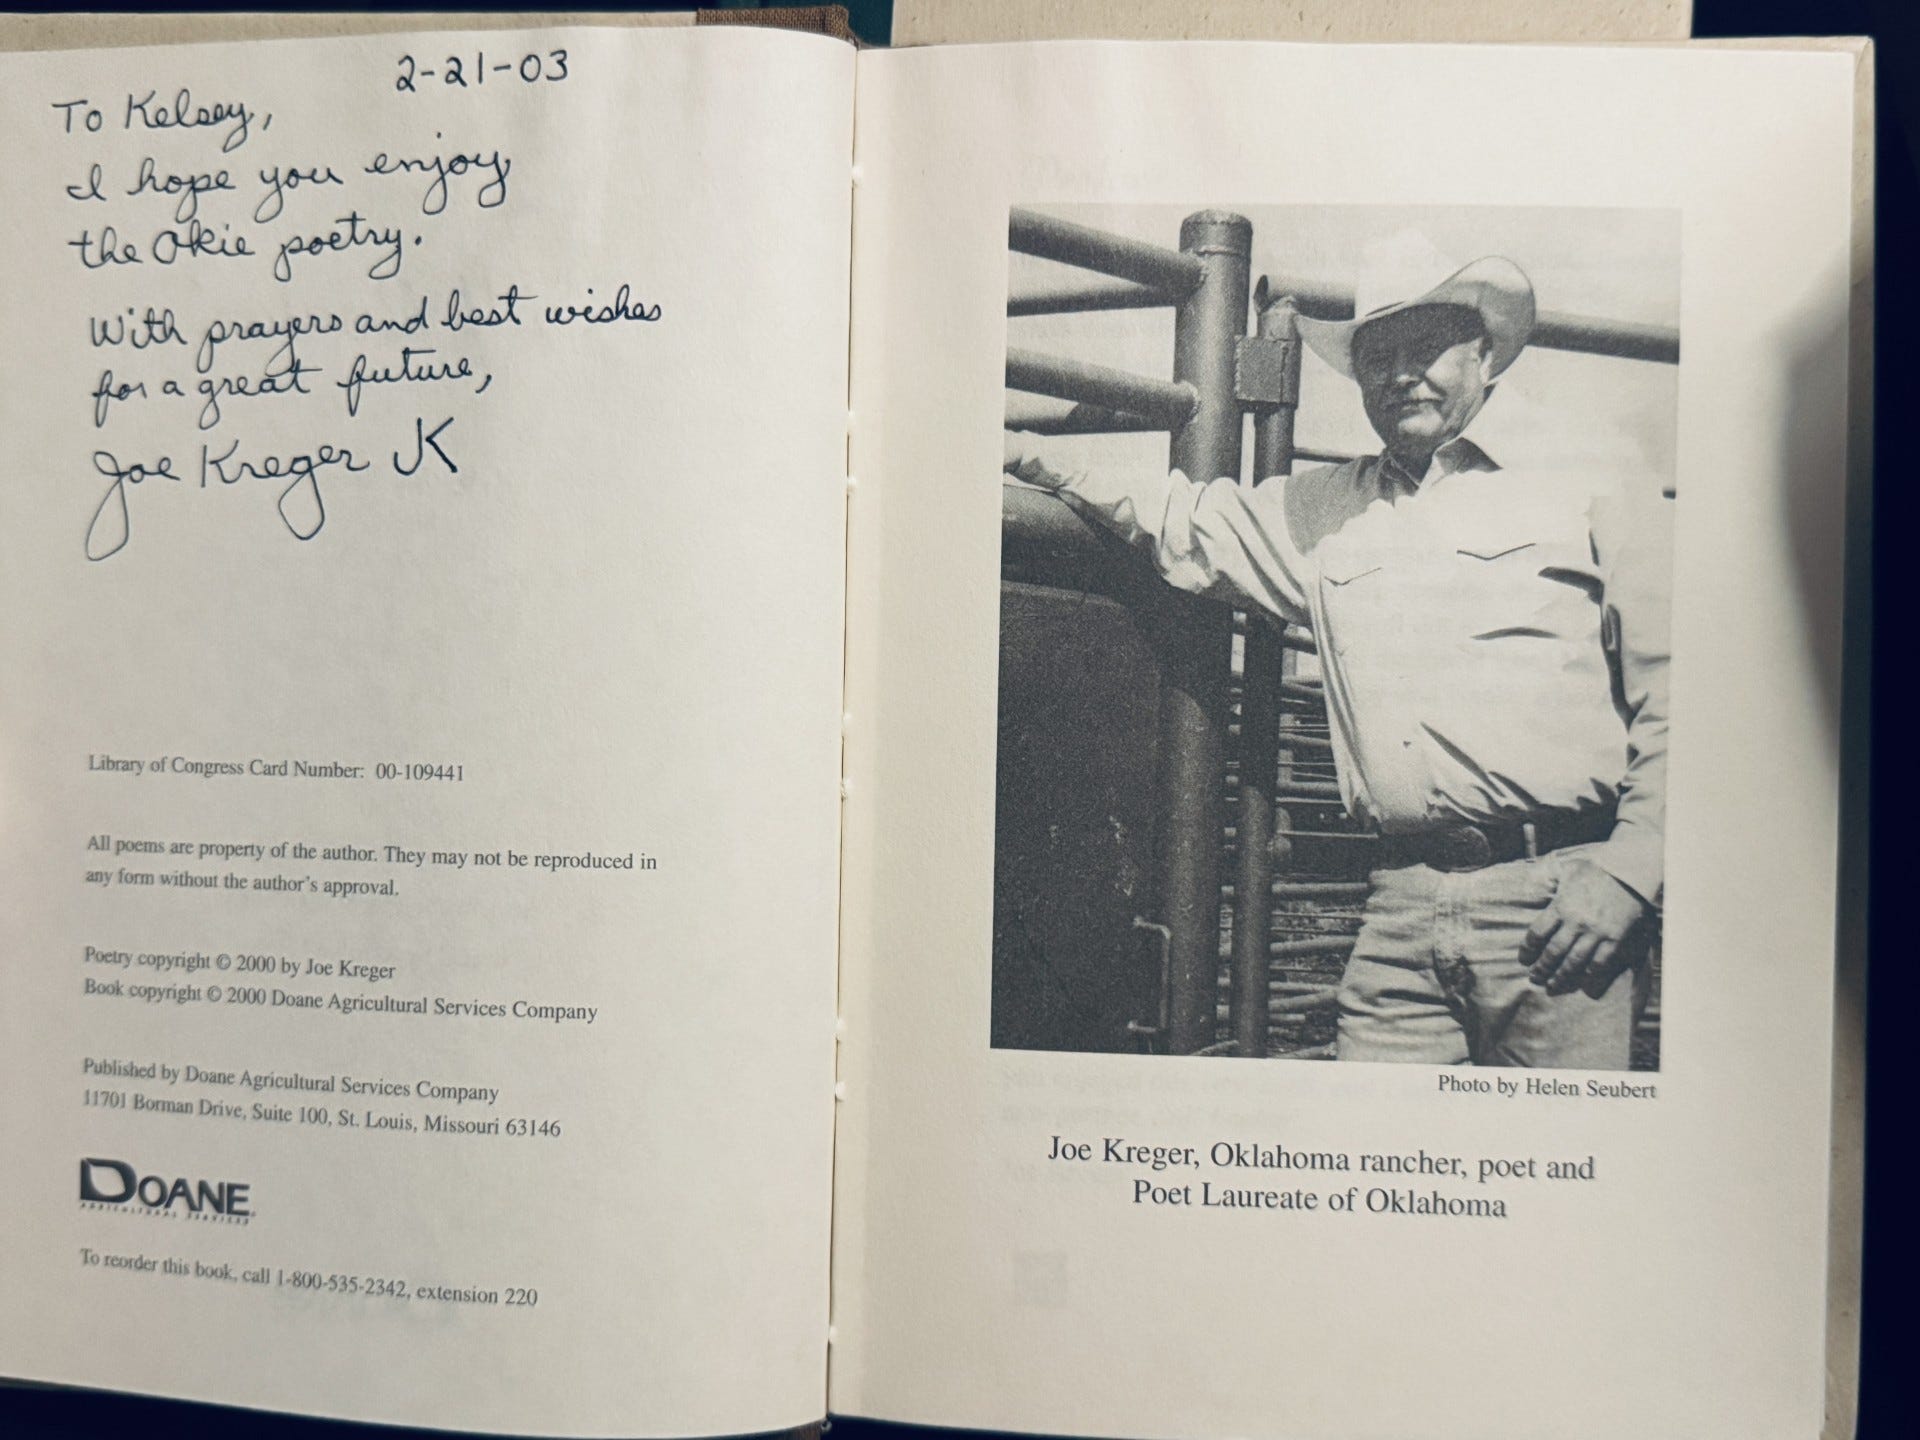 2-21-03
To Kelsey,
I hope you enjoy
the Okie poetry.
With prayers and best wishes
for a great future,
Joe Kreger JK
Library of Congress Card Number: 00-109441
All poems are property of the author. They may not be reproduced in
any form without the author's approval.
Poetry copyright © 2000 by Joe Kreger
Book copyright © 2000 Doane Agricultural Services Company
Published by Doane Agricultural Services Company
11701 Borman Drive, Suite 100, St. Louis, Missouri 63146
DOANE
AGRICULTURAL SERVICES
To reorder this book, call 1-800-535-2342, extension 220
Photo by Helen Seubert
Joe Kreger, Oklahoma rancher, poet and
Poet Laureate of Oklahoma